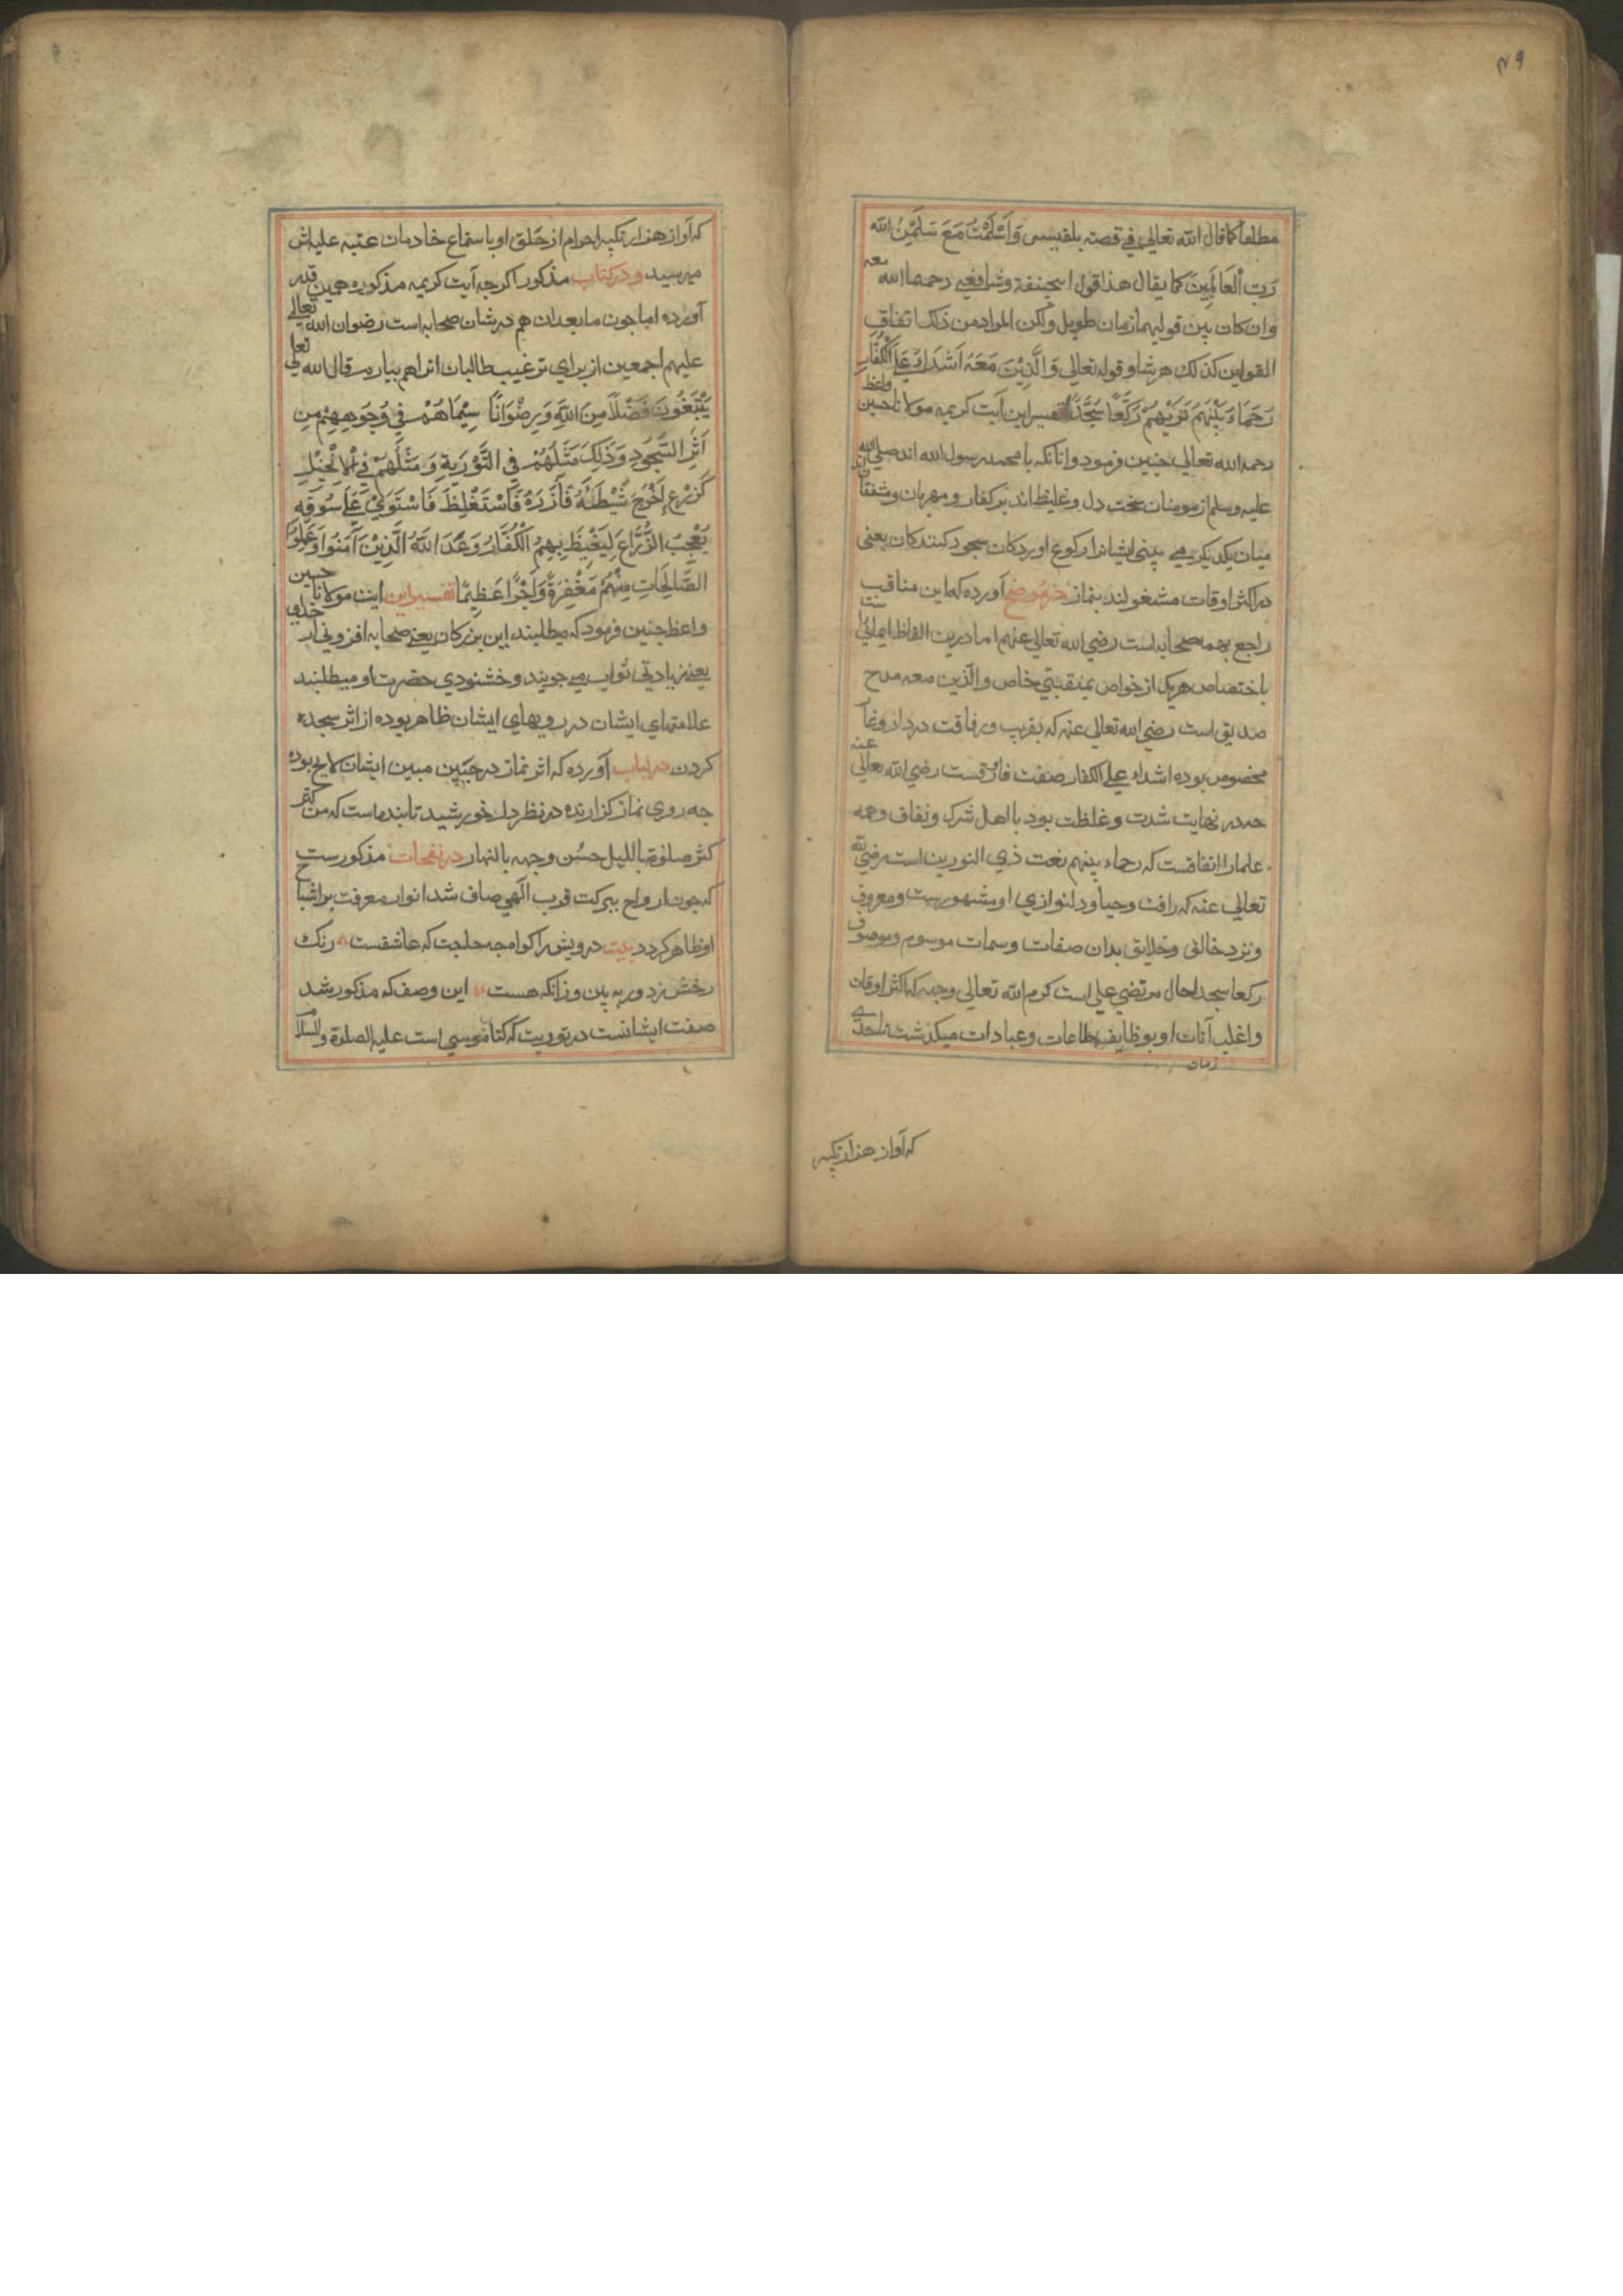 ۴۹
مطلعا کما قال الله تعالی فی قصته بلقیس وَاَسْلَمْتُ مَعَ سَلَمْیْنَ الله
رَبِّ الْعَالَمِینَ کما یقال هذا قول ابیحنیفة وشافعی رحمهما الله
وان کان بین قولیهما زمان طویل ولکن المراد من ذلک اتفاق
القولین کذلک هر شاو قوله تعالی وَالَّذِیْنَ مَعَهُ اَشِدَاءُ عَلَی الْکُفَّارِ
رُحَمَاءُ بَیْنَهُمْ تَرَیٰهُمْ رُکَّعًا سُجَّدًا تفسیر این آیت کریمه مولانا حسین واعظ
رحمه الله تعالی جنین فرمود وانانکه با محمد رسول الله اند صلی الله
علیه وسلم از مومنان سخت دل وغلیظ اند بر کفار و مهربان ومشفقان اند
میان یکدیکر می بینی ایشانرا رکوع اورد کان سجود کنندکان یعنی
در اکثر اوقات مشغولند بنماز در موضح آورده که این مناقب
راجع بهمه صحابه است رضی الله تعالی عنهم اما درین الفاظ ایمائیست
باختصاص هریک از خواص بمنقبتی خاص والّذین معه مدح
صدیق است رضی الله تعالی عنه که بقرب ورفاقت در دار وغار
مخصوص بوده اشداء علی الکفار صفت فاروقست رضی الله تعالی عنه
که در نهایت شدت وغلظت بود با اهل شرک ونفاق وهمه
علمارا اتفاقست که رحماء بینهم نعت ذی النورین است رضی الله
تعالی عنه که رافت وحیا ودلنوازی او مشهورست ومعروف
ونزد خالق وخلایق بدان صفات وسمات موسوم وموصوف
رکعا سجدا حال مرتضی علی است کرم الله تعالی وجهه که اکثر اوقات
واغلب آنات او بوظایف طاعات وعبادات میکذشت تا حدی
که آواز هزار تکبیر
که آواز هزار تکبیر احرام از خلق او باستماع خادمان عتبه علیه اش
میرسید ودر کتاب مذکور اکرجه آیت کریمه مذکوره همین قدر
آورده اما جون مابعد ان هم در شان صحابه است رضوان الله تعالی
علیهم اجمعین از برای ترغیب طالبان انرا هم بیارم قال الله تعالی
یَبْتَغُونَ فَضْلًا مِنَ اللهِ وَرِضْوَانًا سِیْمَاهُمْ فِی وُجُوهِهِمْ مِن
اَثَرِ السُّجُودِ وَذَلِکَ مَثَلُهُمْ فِی التَّوْرَیةِ وَمَثَلُهُمْ فِی الْاِنْجِیْلِ
کَزَرْعٍ اَخْرَجَ شَطْئَهُ فَاَزَرَهُ فَاسْتَغْلَظَ فَاسْتَوَیٰ عَلَی سُوقِهِ
یُعْجِبُ الزُّرَّاعَ لِیَغِیْظَ بِهِمُ الْکُفَّارَ وَعَدَ اللهُ الَّذِیْنَ آمَنُوا وَعَمِلُوا
الصَّالِحَاتِ مِنْهُمْ مَغْفِرَةً وَاَجْرًا عَظِیْمًا تفسیر این ایت مولانا حسین
واعظ جنین فرمود که میطلبند این بزرکان یعنی صحابه افزونی از خدای
یعنی زیادتی ثواب می جویند وخشنودی حضرت او میطلبند
علامتهای ایشان در رویهای ایشان ظاهر بوده از اثر سجده
کردن در لباب آورده که اثر نماز در جبین مبین ایشان لایح بوده
جه روی نماز کزارنده در نظر دل خورشید تابنده است که من کثر
کثر صلوته باللیل حسُن وجهه بالنهار در نفحات مذکورست
که جون ارواح ببرکت قرب الهی صاف شد انوار معرفت بر اشباح
او ظاهر کردد بیت درویش را کواه جه حاجت که عاشقست رنک
رخش ز دور به بین وزانکه هست این وصف که مذکور شد
صفت ایشانست در توریت که کتاب موسی است علیه الصلوة والسلام